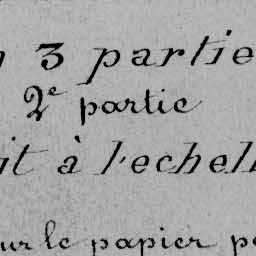 n 3 partie
2e partie
it à l'echell
ur le papier pa